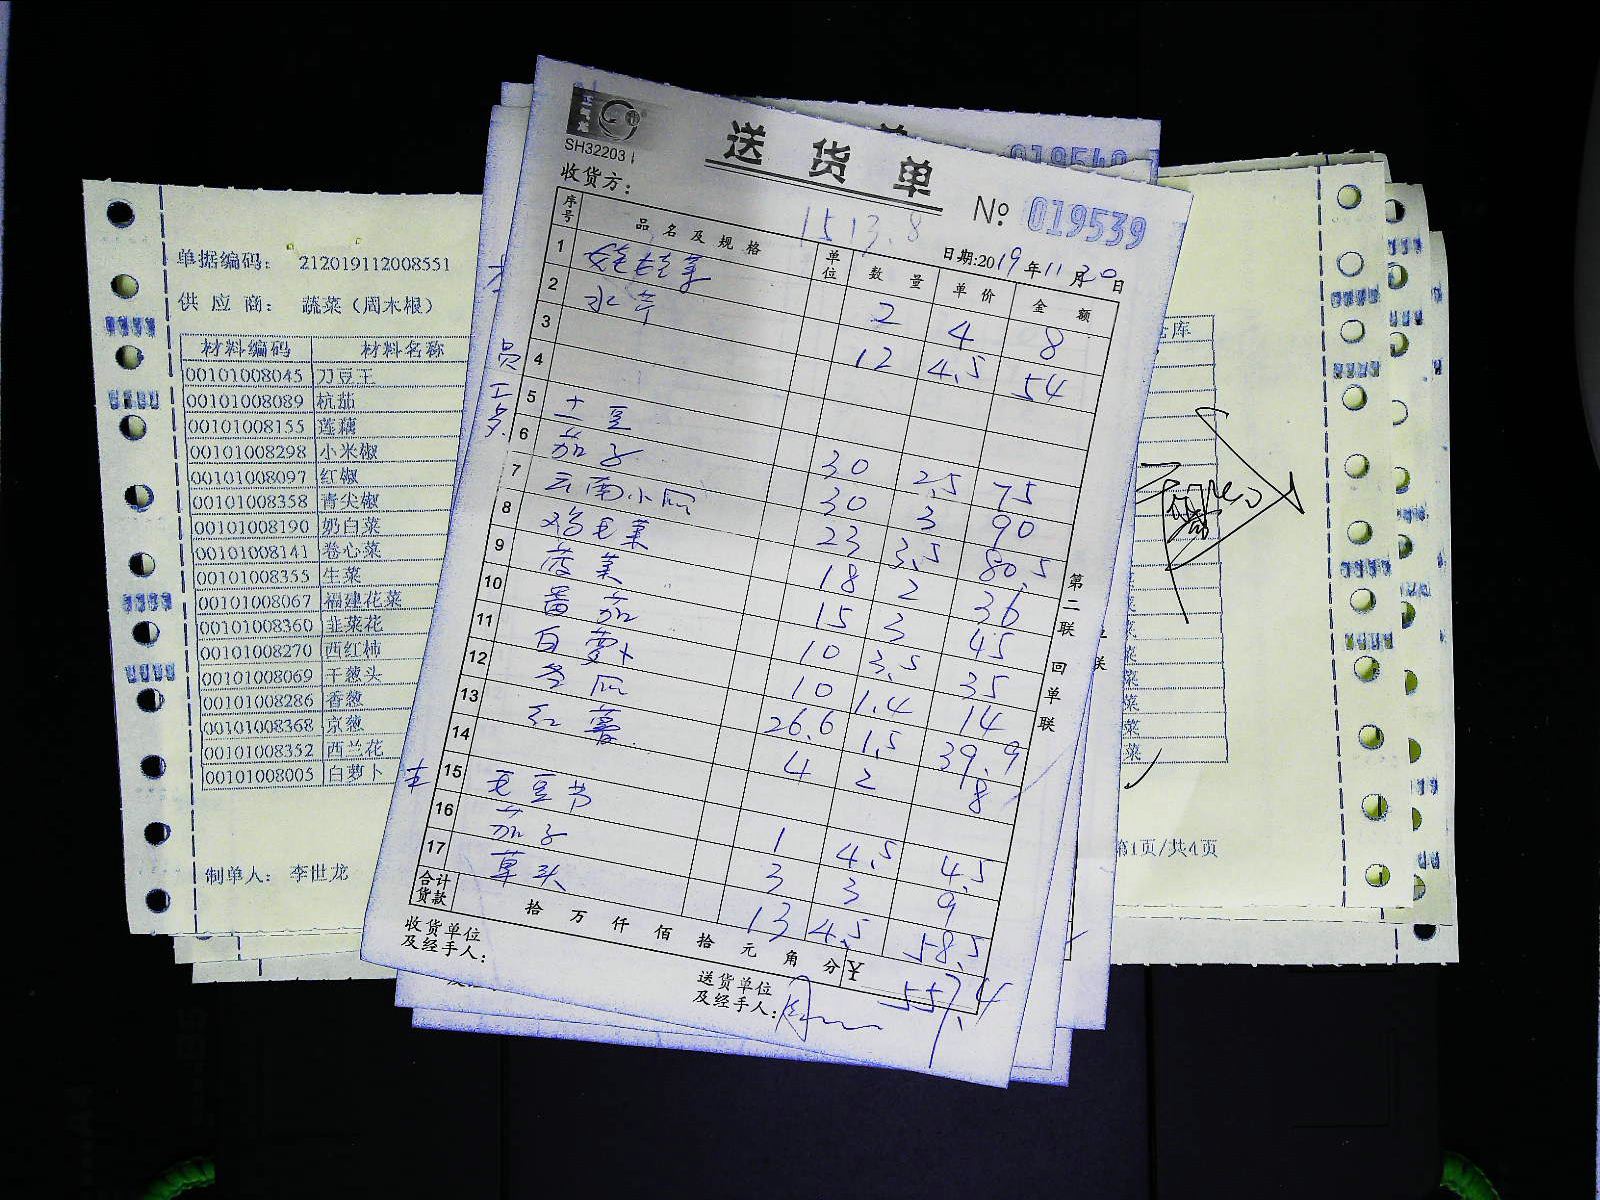 SH32203
送货单
№ 019539
019540
收货方：
1513.8
日期:2019年11月30日
序号 品名及规格 单位 数量 单价 金额
1 娃娃菜 2 4 8
2 水芹 12 4.5 54
3
4
5 土豆 30 2.5 75
6 茄子 30 3 90
7 云南小瓜 23 3.5 80.5
8 鸡毛菜 18 2 36
9 菠菜 15 3 45
10 番茄 10 3.5 35
11 白萝卜 10 1.4 14
12 冬瓜 26.6 1.5 39.9
13 红薯 4 2 8
14
15 毛豆节 1 4.5 4.5
16 茄子 3 3 9
17 草头 13 4.5 58.5
合计货款 拾 万 仟 佰 拾 元 角 分 ¥ 557.4
收货单位及经手人：
送货单位及经手人：
第二联 回单联
员工
单据编码： 212019112008551
供应商： 蔬菜（周木根）
材料编码 材料名称
00101008045 刀豆王
00101008089 杭茄
00101008155 莲藕
00101008298 小米椒
00101008097 红椒
00101008358 青尖椒
00101008190 奶白菜
00101008141 卷心菜
00101008355 生菜
00101008067 福建花菜
00101008360 韭菜花
00101008270 西红柿
00101008069 干葱头
00101008286 香葱
00101008368 京葱
00101008352 西兰花
00101008005 白萝卜
制单人： 李世龙
库
菜
菜
菜
菜
菜
菜
菜
第1页/共4页